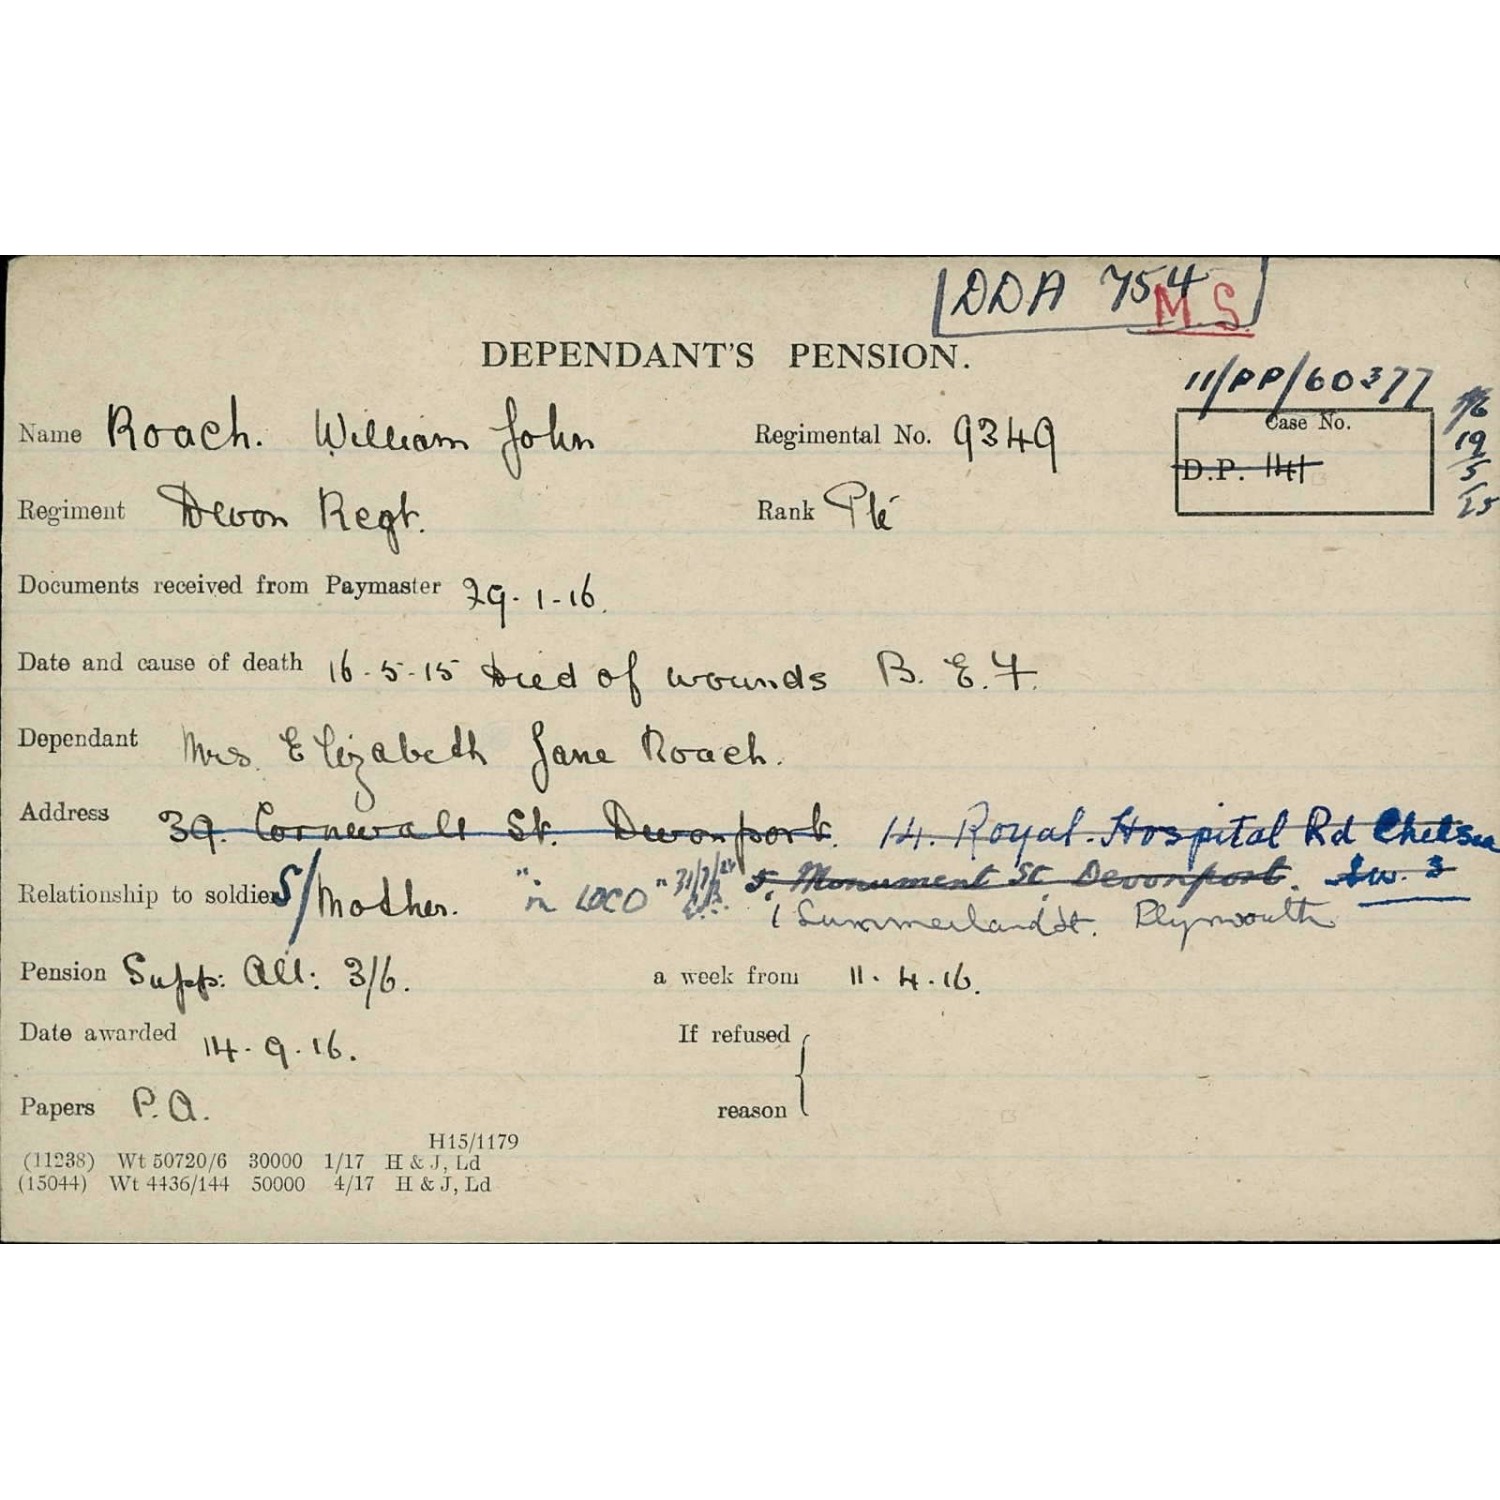 DDA 754
M.S.
DEPENDANT'S PENSION.
11/PP/60377
Name Roach. William John Regimental No. 9349
Case No.
D.P. 141
19
5
25
Regiment Devon Regt. Rank Pte
Documents received from Paymaster 29.1-16.
Date and cause of death 16-5-15 Died of wounds B.E.F.
Dependant Mrs. Elizabeth Jane Roach.
Address 39. Cornwall St. Devonport. 14. Royal. Hospital Rd Chelsea
S.W. 3
5, Monument St Devonport.
Relationship to soldier S/Mother. "in LOCO"
1 Summerland St. Plymouth
Pension Supp: All: 3/6. a week from 11.4.16.
Date awarded 14.9.16. If refused
Papers P.A. reason
H15/1179
(11238) Wt 50720/6 30000 1/17 H & J, Ld
(15044) Wt 4436/144 50000 4/17 H & J, Ld